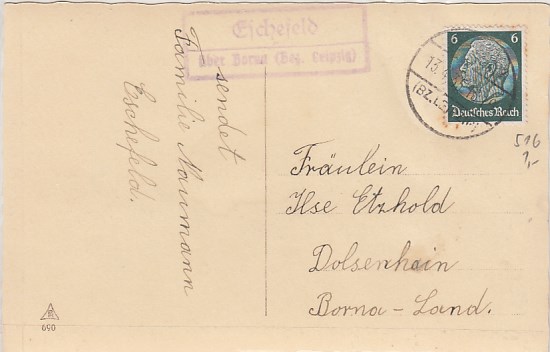 Eschefeld
über Borna (Bez. Leipzig)
6 6
Deutsches Reich
13.
516
1,-
sendet
Familie Naumann
Eschefeld.
Fräulein
Ilse Etzhold
Dolsenhain
Borna-Land.
690